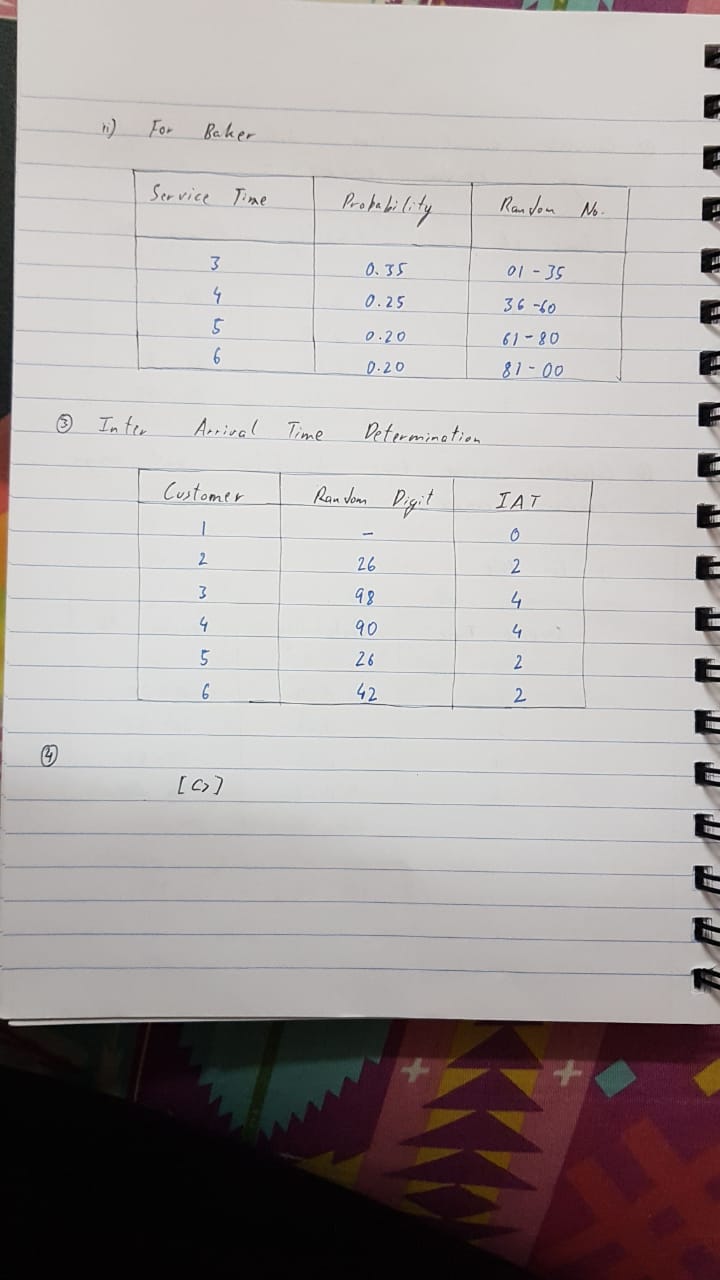 ii) For Baker
Service Time Probability Random No.
3 0.35 01-35
4 0.25 36-60
5 0.20 61-80
6 0.20 81-00
③ Inter Arrival Time Determination
Customer Random Digit IAT
1 - 0
2 26 2
3 98 4
4 90 4
5 26 2
6 42 2
④